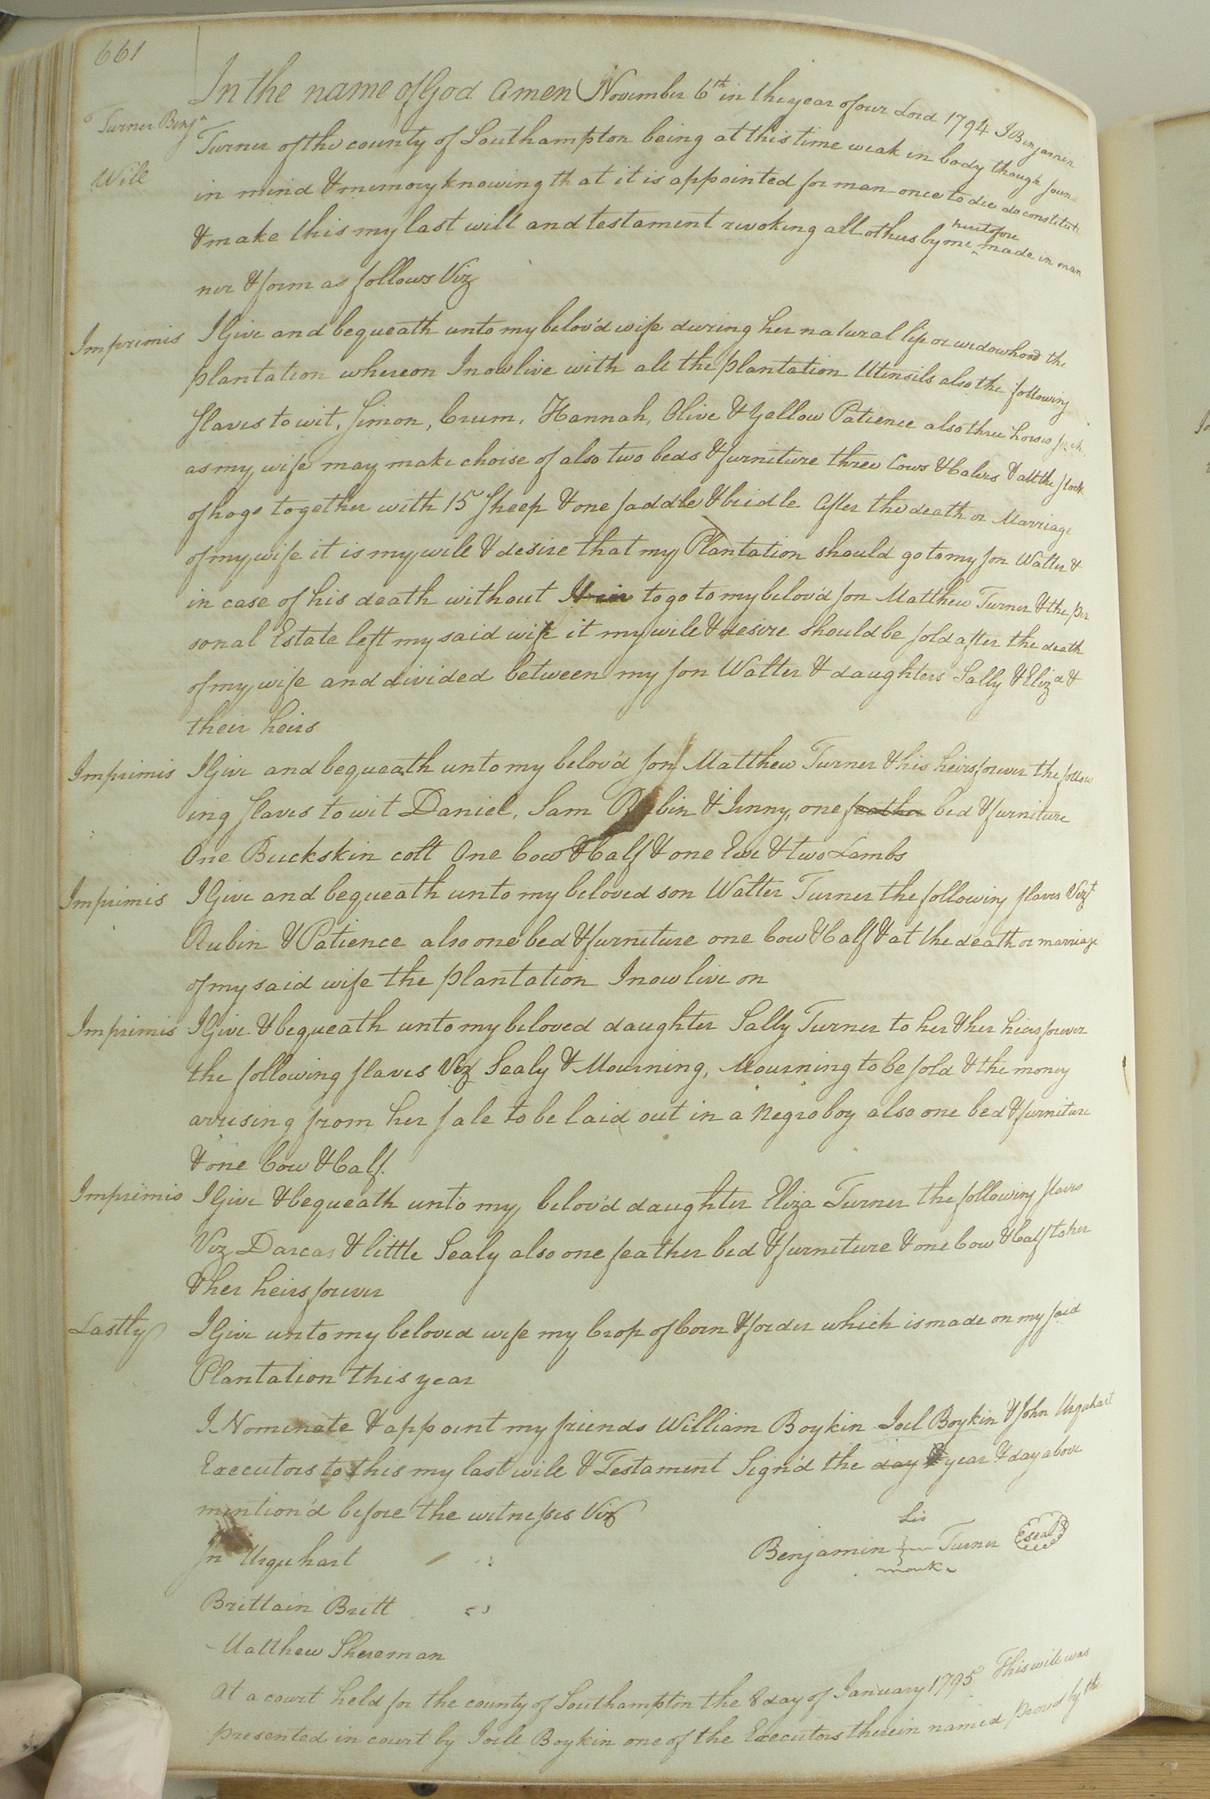 661
Turner Benjn
Will
In the name of God Amen November 6th in the year of our Lord 1794 I Benjamin
Turner of the county of Southampton being at this time weak in body though soun
in mind & memory knowing that it is appointed for man once to die do constitute
& make this my last will and testament revoking all others by me heretofore made in man
ner & form as follows Viz
Imprimis I Give and bequeath unto my belov'd wife during her natural life or widowhood the
plantation whereon I now live with all the plantation Utensils also the following
slaves to wit, Simon, Crum, Hannah, Olive & Yallow Patience also three horses such
as my wife may make choise of also two beds & furniture three Cows & Calves & all the stock
of hogs together with 15 Sheep & one saddle & bridle After the death or Marriage
of my wife it is my will & desire that my Plantation should go to my son Walter &
in case of his death without Heir to go to my belov'd son Matthew Turner & the per
sonal Estate left my said wife it my will & desire should be sold after the death
of my wife and divided between my son Walter & daughters Sally & Eliza &
their heirs
Imprimis I Give and bequeath unto my belov'd son Matthew Turner & his heirs forever the follow
ing slaves to wit Daniel, Sam Rubin & Jinny, one feather bed & furniture
One Buckskin colt One Cow & Calf & one Ewe & two Lambs
Imprimis I Give and bequeath unto my beloved son Walter Turner the following slaves Vizt
Rubin & Patience also one bed & furniture one Cow & Calf & at the death or marriage
of my said wife the plantation I now live on
Imprimis I Give & bequeath unto my beloved daughter Sally Turner to her & her heirs forever
the following slaves Viz Sealy & Mourning, Mourning to be sold & the money
arrising from her sale to be laid out in a Negro boy also one bed & furniture
& one Cow & Calf.
Imprimis I Give & bequeath unto my belov'd daughter Eliza Turner the following slaves
Viz Darcas & little Sealy also one feather bed & furniture & one Cow & Calf to her
& her heirs forever
Lastly I Give unto my beloved wife my Crop of Corn & foder which is made on my said
Plantation this year
I Nominate & appoint my friends William Boykin Joel Boykin & John Urquhart
Executors to this my last will & Testament Sign'd the day & year & day above
mention'd before the witnesses Viz
his
Benjamin Turner seal
mark
Jn Urquhart
Brittain Britt
Matthew Shereman
At a court held for the county of Southampton the 8 day of January 1795 This will was
presented in court by Joell Boykin one of the Executors therein named proved by the